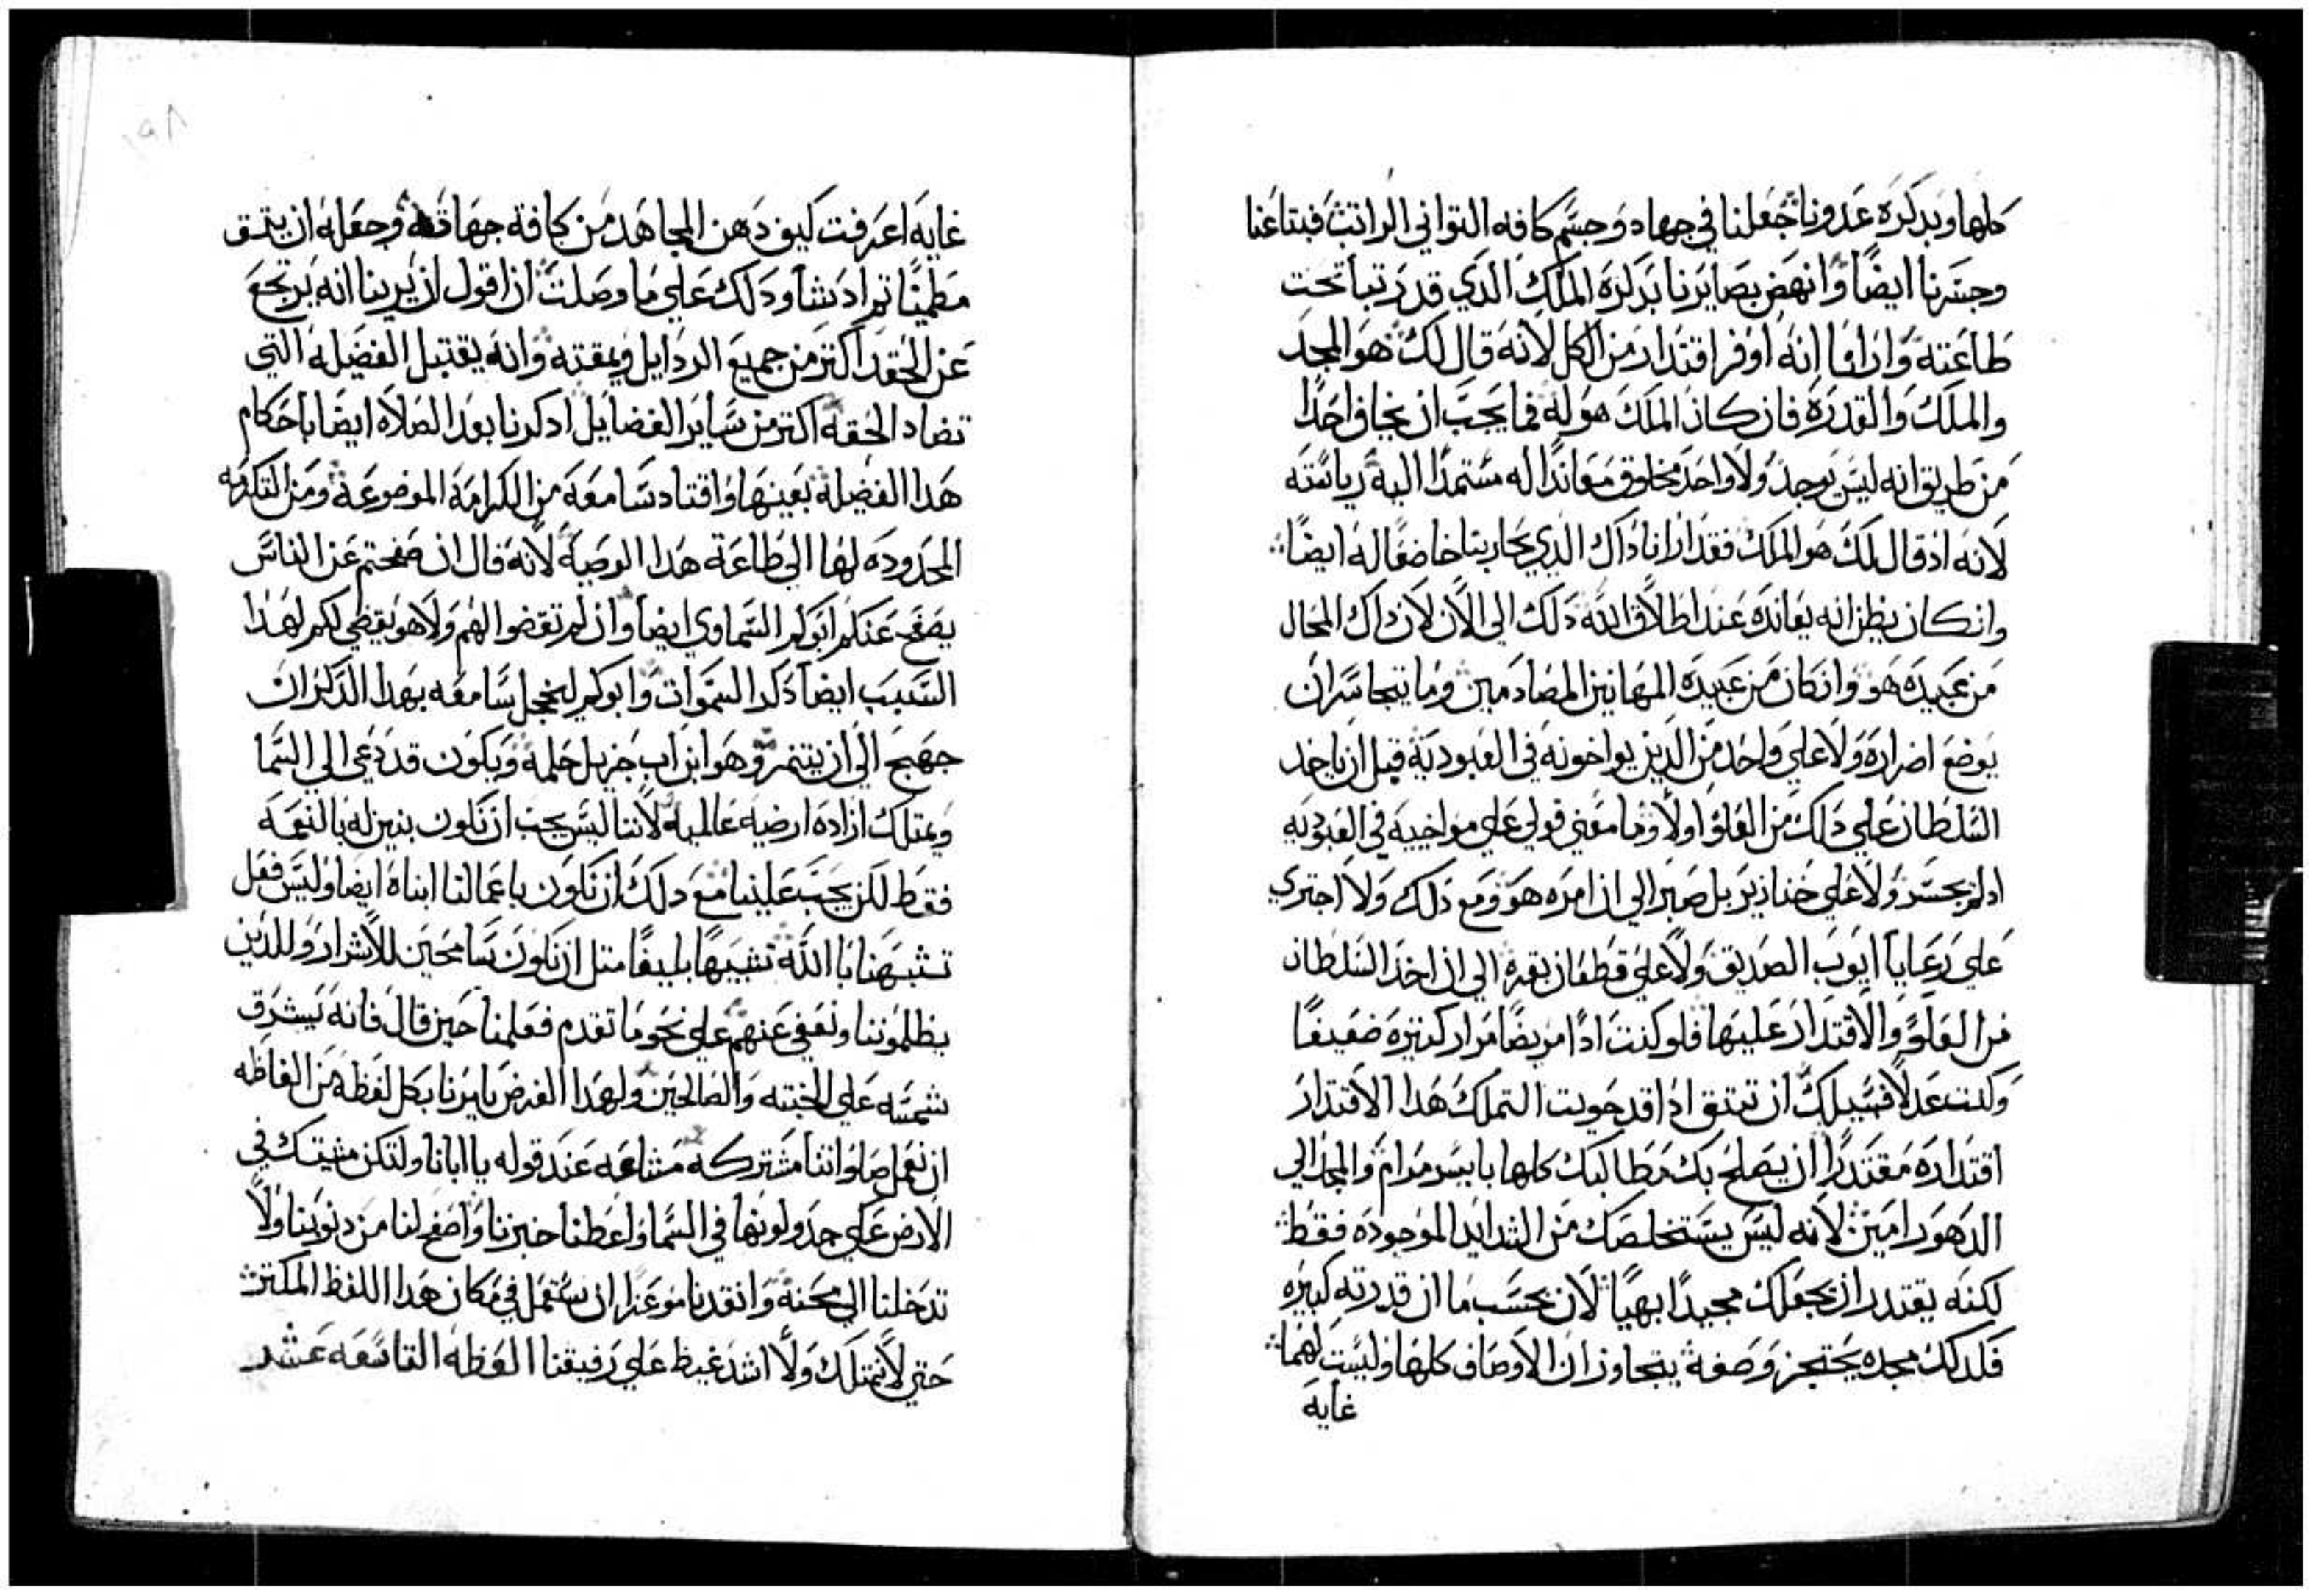 كلها وبدكره عدونا جعلنا في جهاد وحسم كافه التواني الراتب فبتاعنا
وجسرنا ايضًا وانهض بصايرنا بدكره الملك الدي قد رتبنا تحت
طاعته وارانا انه اوفر اقتدار من الكل لانه قال لك هو المجد
والملك والقدره فان كان الملك هو له فما يجب ان يخاف احدًا
من طريق انه ليس يوجد ولا واحد مخلوق معاندًا له مستمدًا اليه رياسته
لانه اد قال لك هو الملك فقد ارانا داك الدي يحاربنا خاضعًا له ايضًا
وانكان يظن انه يعانده عند اطلاق الله دلك الي الان لان داك المحال
من عبيده هو وانكان من عبيده المهانين المصادمين وما يتجاسر ان
يوضع اضراره ولا علي واحد من الدين يواخونه في العبوديه قبل ان ياخد
السلطان علي دلك من العلو اولًا وما معني قولي علي مواخييه في العبوديه
اد لم يجسر ولا علي خنازير بل صبر الي ان امره هو ومع دلك ولا اجتري
علي رعايا ايوب الصديق ولا علي قطعان بقره الي ان اخد السلطان
من العلو والاقتدار عليها فلو كنت ادًا مريضًا مرار كتيره ضعيفًا
وكنت عدلًا فسبيلك ان تتق ادا قد حويت التملك هدا الاقتدار
اقتداره مقتدرًا ان يصلح بك مطالبك كلها بايسر مرام والمجد الي
الدهور امين لانه ليس يستخلصك من الشدايد الموجوده فقط
لكنه يقتدر ان يجعلك مجيدًا بهيًا لان بحسب ما ان قدرته كبيره
فلدلك مجده يحتجز وصفه يتجاوزان الاوصاف كلها وليست لهما
غايه
غايه اعرفت كيف دهن المجاهد من كافة جهاته وجعله ان يتق
مطمينًا تم اد يشا ودلك علي ما وصلت ان اقول ان يرينا انه يرتجع
عن الحقد اكتر من جميع الردايل ويمقته وانه يقتبل الفضيله التي
تضاد الحقد اكتر من ساير الفضايل ادكرنا بعد الصلاه ايضًا باحكام
هدا الفضيله بعينها واقتاد سامعه من الكرامه الموضوعه ومن التكرمه
المحدوده لها الي طاعة هدا الوصيه لانه قال ان صفحتم عن الناس
يصفح عنكم ابوكم السماوي ايضًا وان لم تغضوا لهم ولا هو يغضي لكم لهدا
السبب ايضًا دكر السموات وابوكم ليخجل سامعه بهدا الدكر ان
جهح الي ان يتنمر وهو ابن اب جزيل حلمه ويكون قد دعي الي السما
ويمتلك اراده ارضيه عالميه لاننا ليس يجب ان نكون بنين له بالنعمه
فقط لكن يجب علينا مع دلك ان نكون باعمالنا ابناه ايضًا وليس فعل
تشبهنا باالله تشبيهًا بليغًا متل ان نكون سامحين للاشرار وللدين
يظلموننا ونعفي عنهم علي نحو ما تقدم فعلمنا حين قال فانه يشرق
شمسه علي الخبته والصالحين ولهدا الغرض يامرنا بكل لفظه من الفاظه
ان نعمل صلواتنا مشتركه مشاعه عند قوله يا ابانا ولتكن مشيتك في
الارض علي حد ولونها في السما واعطنا خبزنا واصفح لنا من دنوبنا ولا
تدخلنا الي محنه وانقدنا موعزا ان ستعمل في مكان هدا اللفظ المكتر
حتي لا نمتلك ولا اشد غيظ علي رفيقنا العظه التاسعه عشر